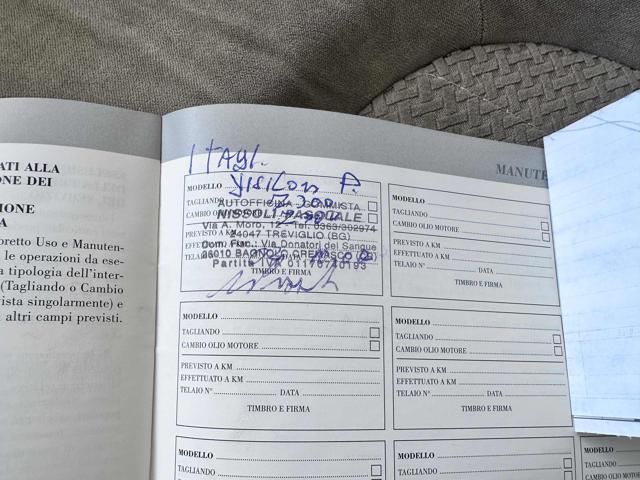 ATI ALLA
ONE DEI
IONE
A
oretto Uso e Manuten-
le operazioni da ese-
a tipologia dell'inter-
(Tagliando o Cambio
vista singolarmente) e
i altri campi previsti.
MANUTE
1 TAGL.
MODELLO
TAGLIANDO
CAMBIO OLIO MOTORE
PREVISTO A KM
EFFETTUATO A KM
TELAIO N°
TIMBRO E FIRMA
AUTOFFICINA - GOMMISTA
NISSOLI PASQUALE
Via A. Moro, 12 - Tel. 0363/302974
24047 TREVIGLIO (BG)
Dom. Fisc.: Via Donatori del Sangue
MODELLO
TAGLIANDO
CAMBIO OLIO MOTORE
PREVISTO A KM
EFFETTUATO A KM
TELAIO N° DATA
TIMBRO E FIRMA
MODELLO
TAGLIANDO
CAMBIO OLIO MOTORE
PREVISTO A KM
EFFETTUATO A KM
TELAIO N° DATA
TIMBRO E FIRMA
MODELLO
TAGLIANDO
CAMBIO OLIO MOTORE
PREVISTO A KM
EFFETTUATO A KM
TELAIO N° DATA
TIMBRO E FIRMA
MODELLO
TAGLIANDO
MODELLO
TAGLIANDO